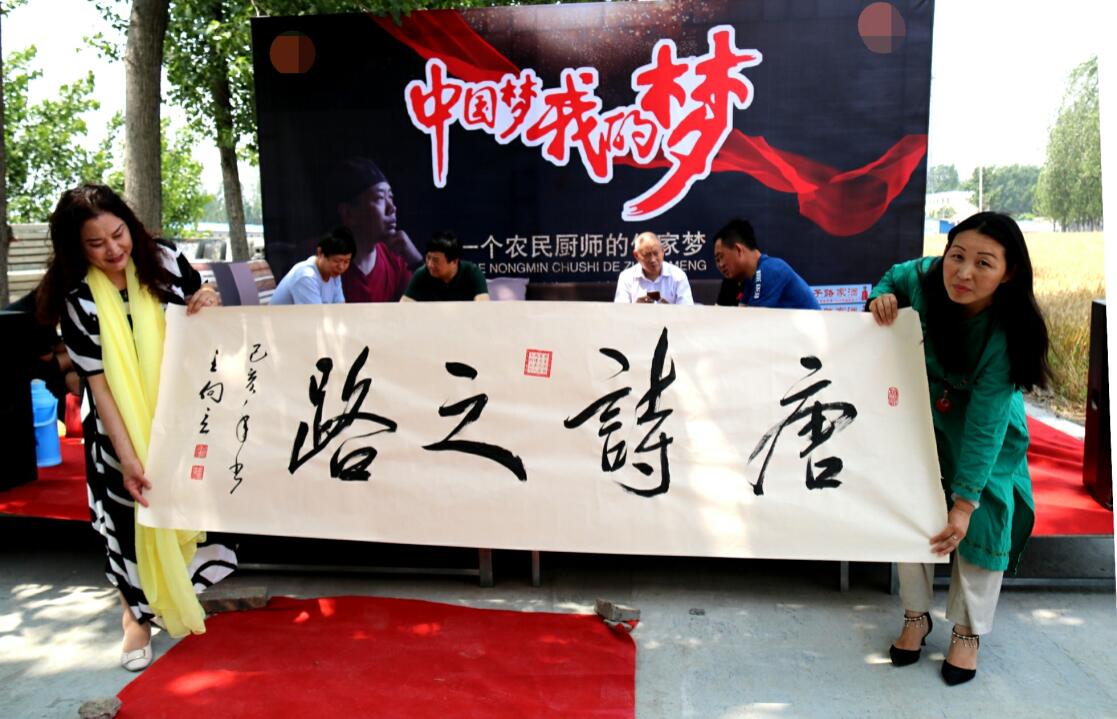 中国梦我的梦
一个农民厨师的家梦
NONGMIN CHUSHI DE MENG
唐詩之路
己亥年书
王向立
子路家酒